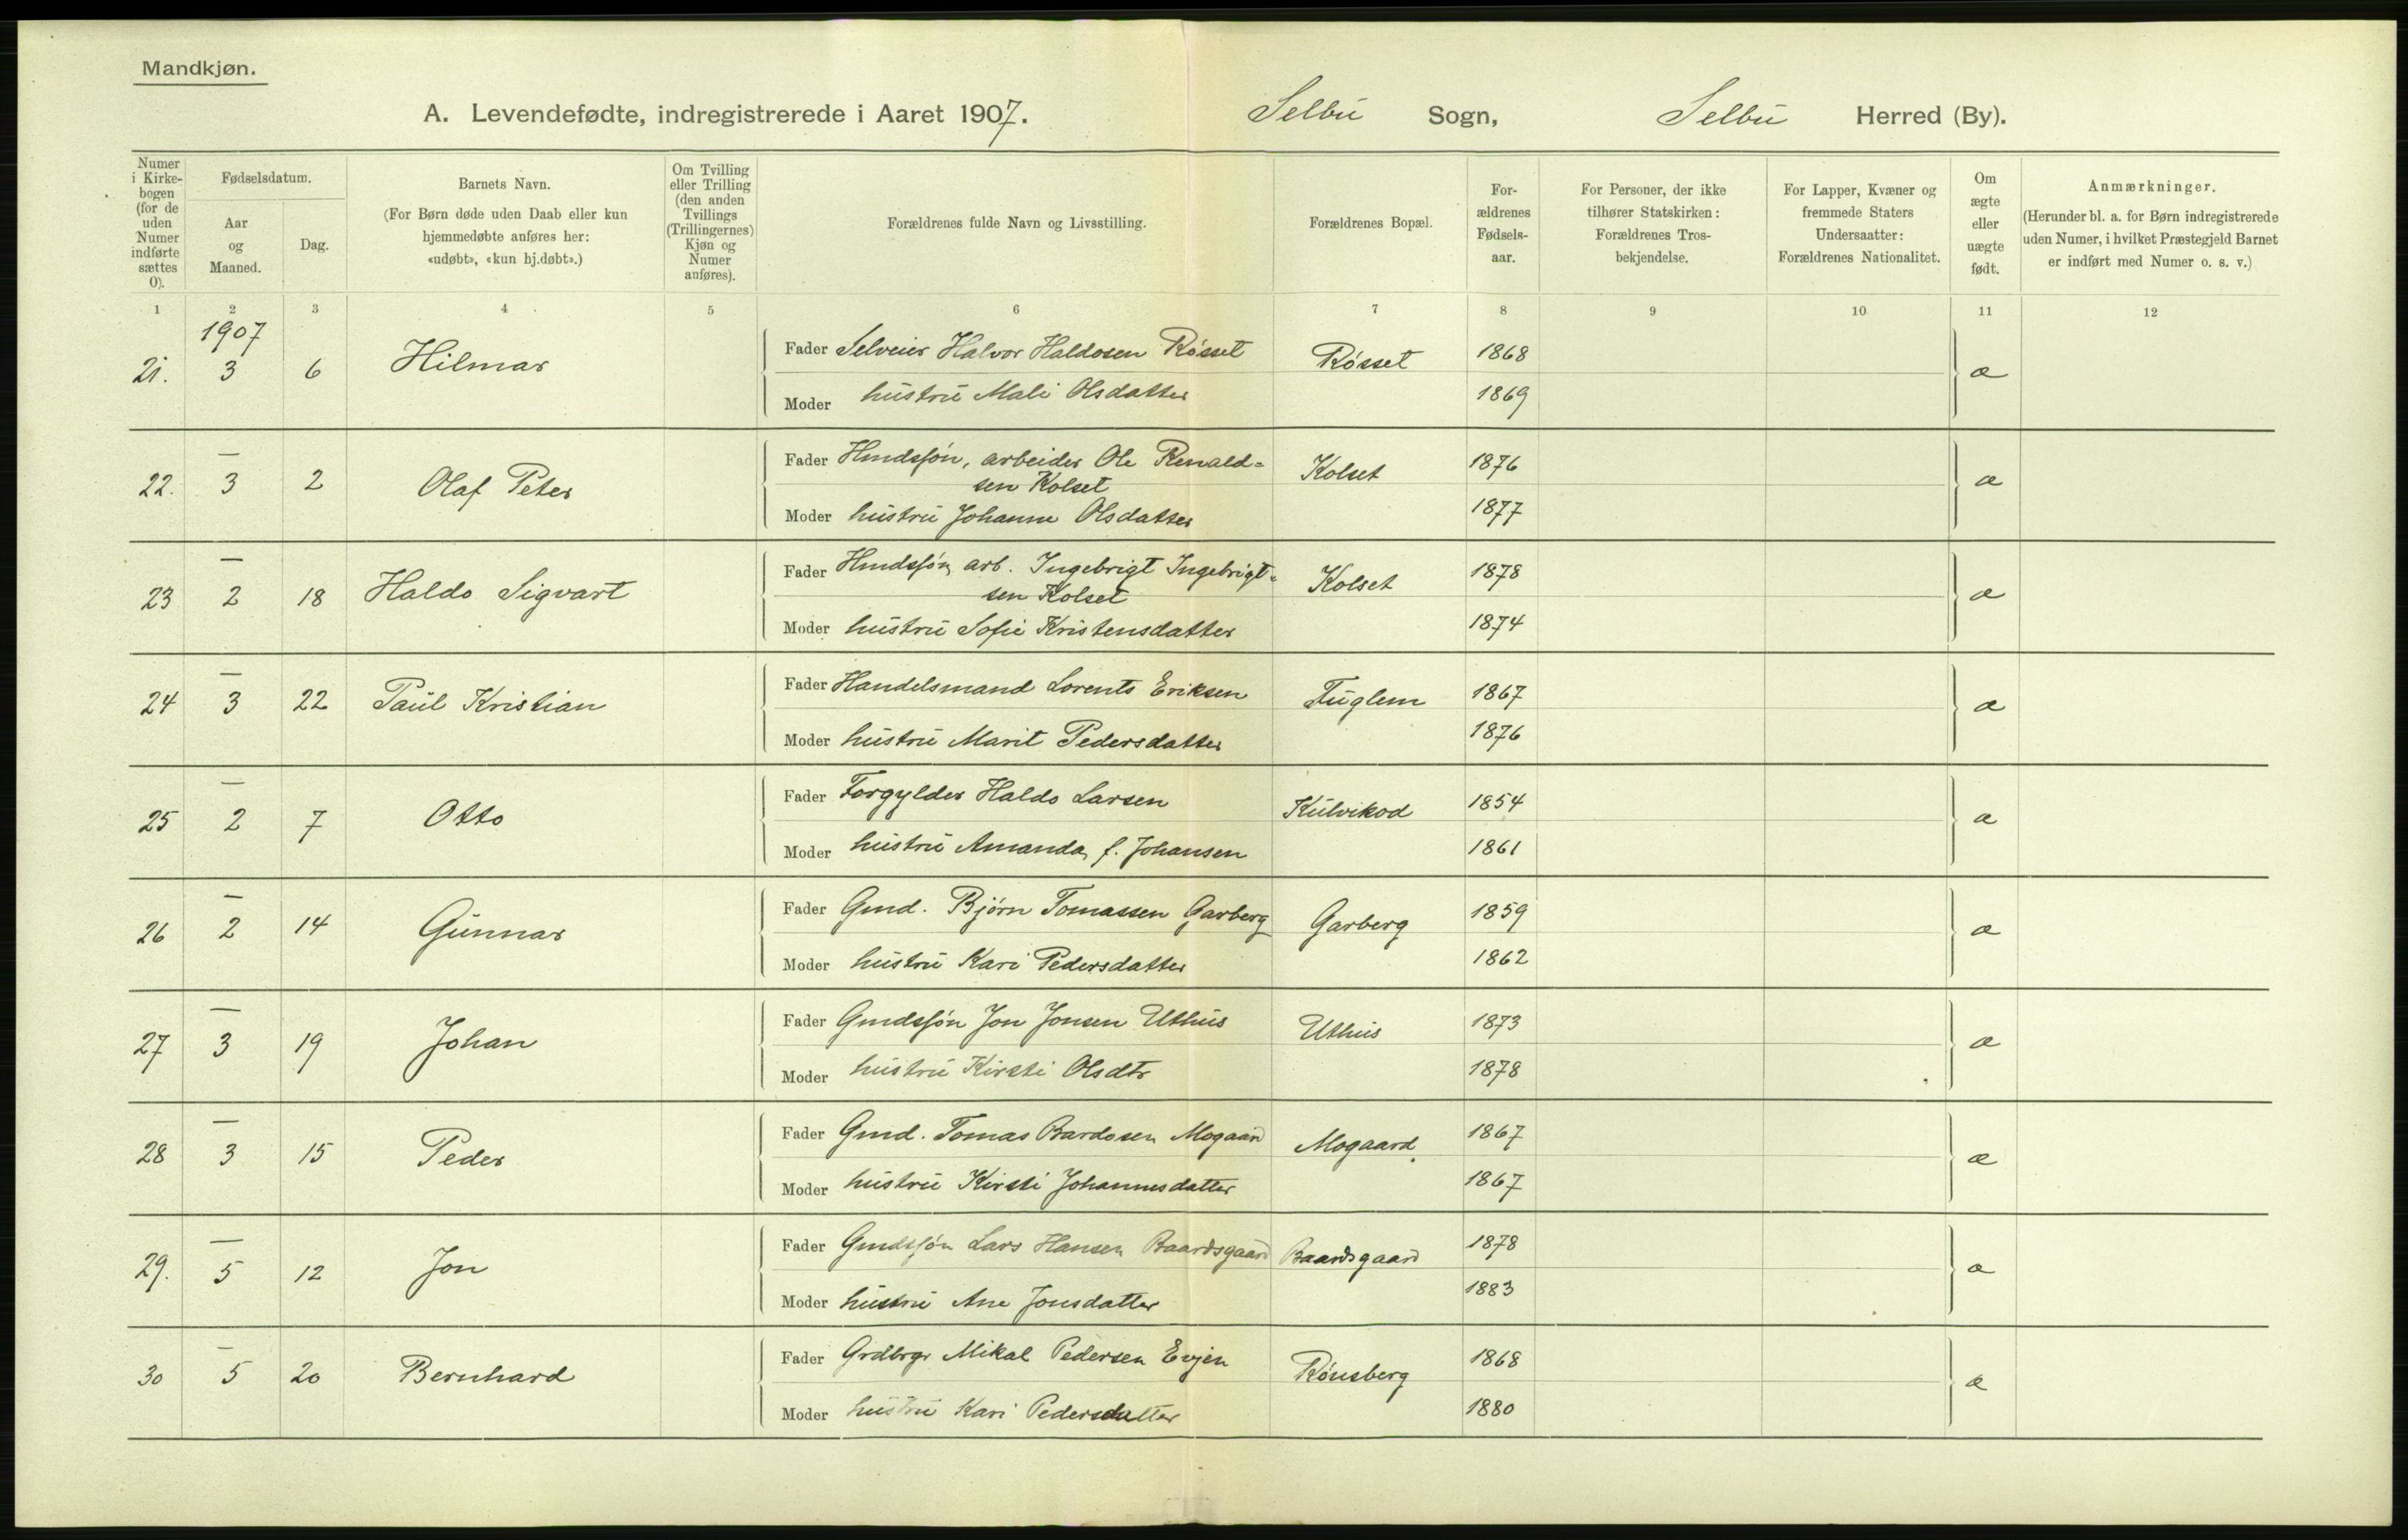 Mandkjøn.
A. Levendefødte, indregistrerede i Aaret 1907. Selbu Sogn, Selbu Herred (By).
Numer i Kirkebogen (for de uden Numer indførte sættes 0).
Fødselsdatum.
Aar og Maaned.
Dag.
Barnets Navn.
(For Børn døde uden Daab eller kun hjemmedøbte anføres her: «udøbt», «kun hj.døbt».)
Om Tvilling eller Trilling (den anden Tvillings (Trillingernes) Kjøn og Numer anføres).
Forældrenes fulde Navn og Livsstilling.
Forældrenes Bopæl.
Forældrenes Fødselsaar.
For Personer, der ikke tilhører Statskirken: Forældrenes Trosbekjendelse.
For Lapper, Kvæner og fremmede Staters Undersaatter: Forældrenes Nationalitet.
Om ægte eller uægte født.
Anmærkninger.
(Herunder bl. a. for Børn indregistrerede uden Numer, i hvilket Præstegjeld Barnet er indført med Numer o. s. v.)
1 2 3 4 5 6 7 8 9 10 11 12
1907
21. 3 6 Hilmar Fader Selveier Halvor Haldosen Røsset Røsset 1868 æ
Moder hustru Mali Olsdatter 1869
22. — 3 2 Olaf Peter Fader Hmdssøn, arbeider Ole Renald=
sen Kolset Kolset 1876 æ
Moder hustru Johanne Olsdatter 1877
23 — 2 18 Haldo Sigvart Fader Hmdssøn, arb. Ingebrigt Ingebrigt=
sen Kolset Kolset 1878 æ
Moder hustru Sofie Kristensdatter 1874
24 — 3 22 Paul Kristian Fader Handelsmand Lorents Eriksen Fuglem 1867 æ
Moder hustru Marit Pedersdatter 1876
25 — 2 7 Otto Fader Forgylder Haldo Larsen Kulvikod 1854 æ
Moder hustru Amanda, f. Johansen 1861
26 — 2 14 Gunnar Fader Gmd. Bjørn Tomassen Garberg Garberg 1859 æ
Moder hustru Kari Pedersdatter 1862
27 — 3 19 Johan Fader Gmdssøn Jon Jonsen Uthus Uthus 1873 æ
Moder hustru Kirsti Olsdtr 1878
28 — 3 15 Peder Fader Gmd. Tomas Bardosen Mogaard Mogaard. 1867 æ
Moder hustru Kirsti Johannesdatter 1867
29. — 5 12 Jon Fader Gmdssøn Lars Hansen Baardsgaard Baardsgaard 1878 æ
Moder hustru Ane Jonsdatter 1883
30 — 5 20 Bernhard Fader Grdbrgr Mikal Pedersen Evjen Rønsberg 1868 æ
Moder hustru Kari Pedersdatter 1880